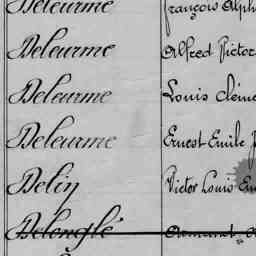 Deleurme François Alph
Deleurme Alfred Victor
Deleurme Louis Cléme
Deleurme Ernest Emile
Delin Victor Louis Em
Delenglé Armand